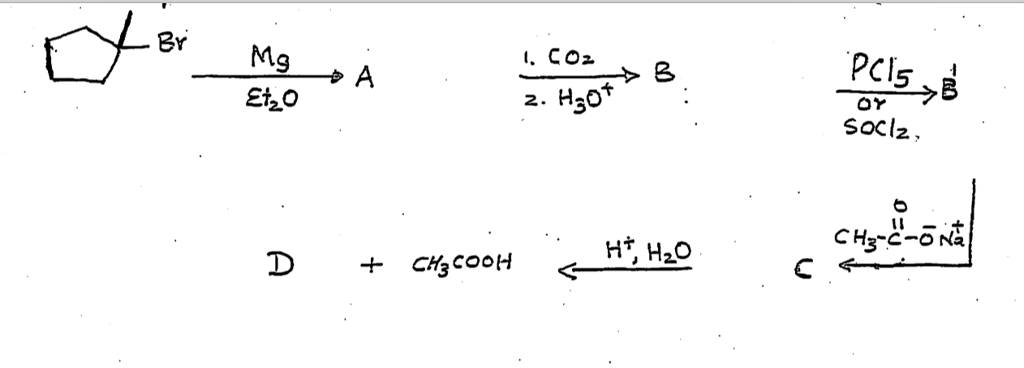 Br
Mg
Et₂O
A
1. CO₂
2. H₃O⁺
B
PCl₅
or
SOCl₂,
B¹
O
CH₃-C-O⁻ Na⁺
C
H⁺, H₂O
D + CH₃COOH